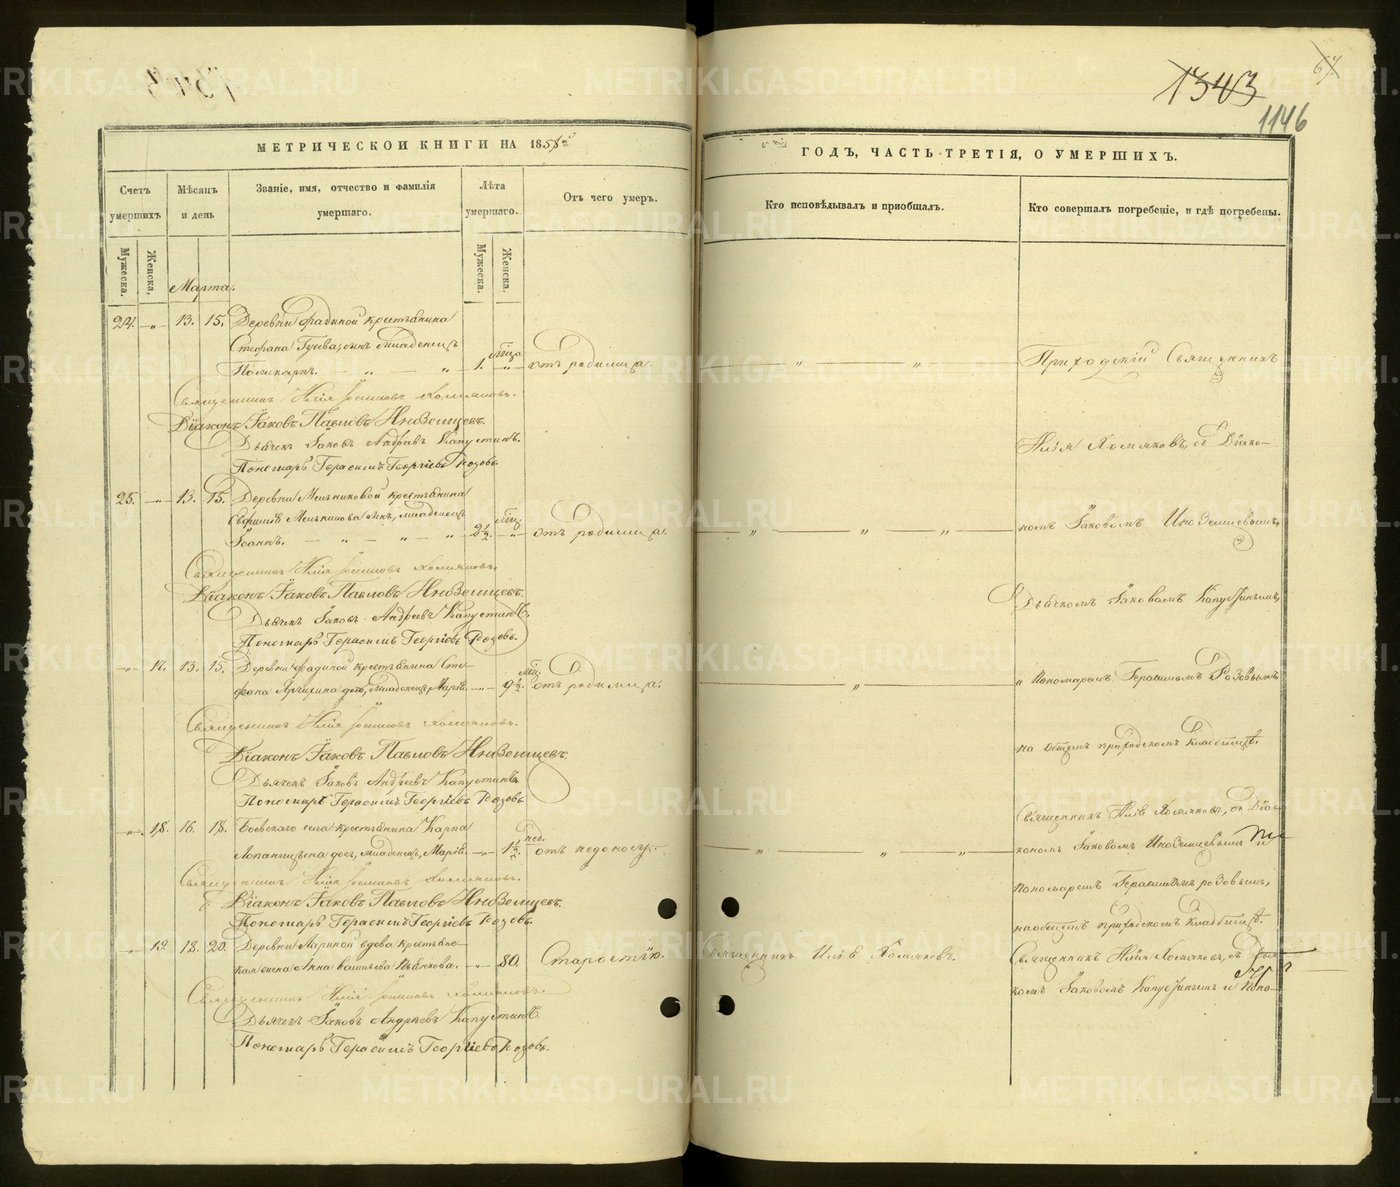 1343
67
1146
МЕТРИЧЕСКОЙ КНИГИ НА 1858й
ГОДЪ, ЧАСТЬ ТРЕТІЯ, О УМЕРШИХЪ.
Счетъ умершихъ
Мѣсяцъ и день
Званіе, имя, отчество и фамилія умершаго.
Лѣта умершаго.
Отъ чего умеръ.
Кто исповѣдывалъ и пріобщалъ.
Кто совершалъ погребеніе, и гдѣ погребены.
Мужеска.
Женска.
Мужеска.
Женска.
Марта.
24. — „ — 13. 15. Деревни Фадиной крестьянина
Стефана сынъ младенецъ
Поликарпъ. „ „ 1. отъ родимца.
Священникъ Илія Хомяковъ.
Діаконъ Іаковъ Павловъ Иноземцевъ.
Дьячекъ Іаковъ Андреевъ Капустинъ.
Пономарь Герасимъ Георгіевъ Розовъ.
25. — 13. 15. Деревни Мельниковой крестьянина
Мельникова сынъ, младенецъ
Іоаннъ. — „ — „ — „ 2½ отъ родимца.
Священникъ Илія Хомяковъ.
Діаконъ Іаковъ Павловъ Иноземцевъ.
Дьячекъ Іаковъ Андреевъ Капустинъ.
Пономарь Герасимъ Георгіевъ Розовъ.
„ 17. 13. 15. Деревни Фадиной крестьянина Сте-
фана дочь, младенецъ Марія — 9½ отъ родимца.
Священникъ Илія Хомяковъ.
Діаконъ Іаковъ Павловъ Иноземцевъ.
Дьячекъ Іаковъ Андреевъ Капустинъ.
Пономарь Герасимъ Георгіевъ Розовъ.
„ 18. 16. 18. Боевскаго села крестьянина Карпа
дочь, младенецъ, Марія. — 1½ нед. отъ недоноску.
Священникъ Илія Хомяковъ.
Діаконъ Іаковъ Павловъ Иноземцевъ.
Пономарь Герасимъ Георгіевъ Розовъ.
19. 18. 20. Деревни Лариной вдова крестьян-
ская жена Анна — „ 80. Старостію.
Священникъ Илія Хомяковъ.
Дьячекъ Іаковъ Андреевъ Капустинъ.
Пономарь Герасимъ Георгіевъ Розовъ.
Священникъ Илія Хомяковъ.
Приходскій Священникъ
Илія Хомяковъ, съ Діако-
номъ Іаковомъ Иноземцевымъ,
Дьячкомъ Іаковомъ Капустинымъ,
и Пономаремъ Герасимомъ Розовымъ
на общемъ приходскомъ кладбищѣ.
Священникъ Илія Хомяковъ, съ Діа-
кономъ Іаковомъ Иноземцевымъ и
пономаремъ Герасимомъ Розовымъ,
на общемъ приходскомъ кладбищѣ.
Священникъ Илія Хомяковъ, съ Дьяч-
комъ Іаковомъ Капустинымъ и Поно-
METRIKI.GASO-URAL.RU